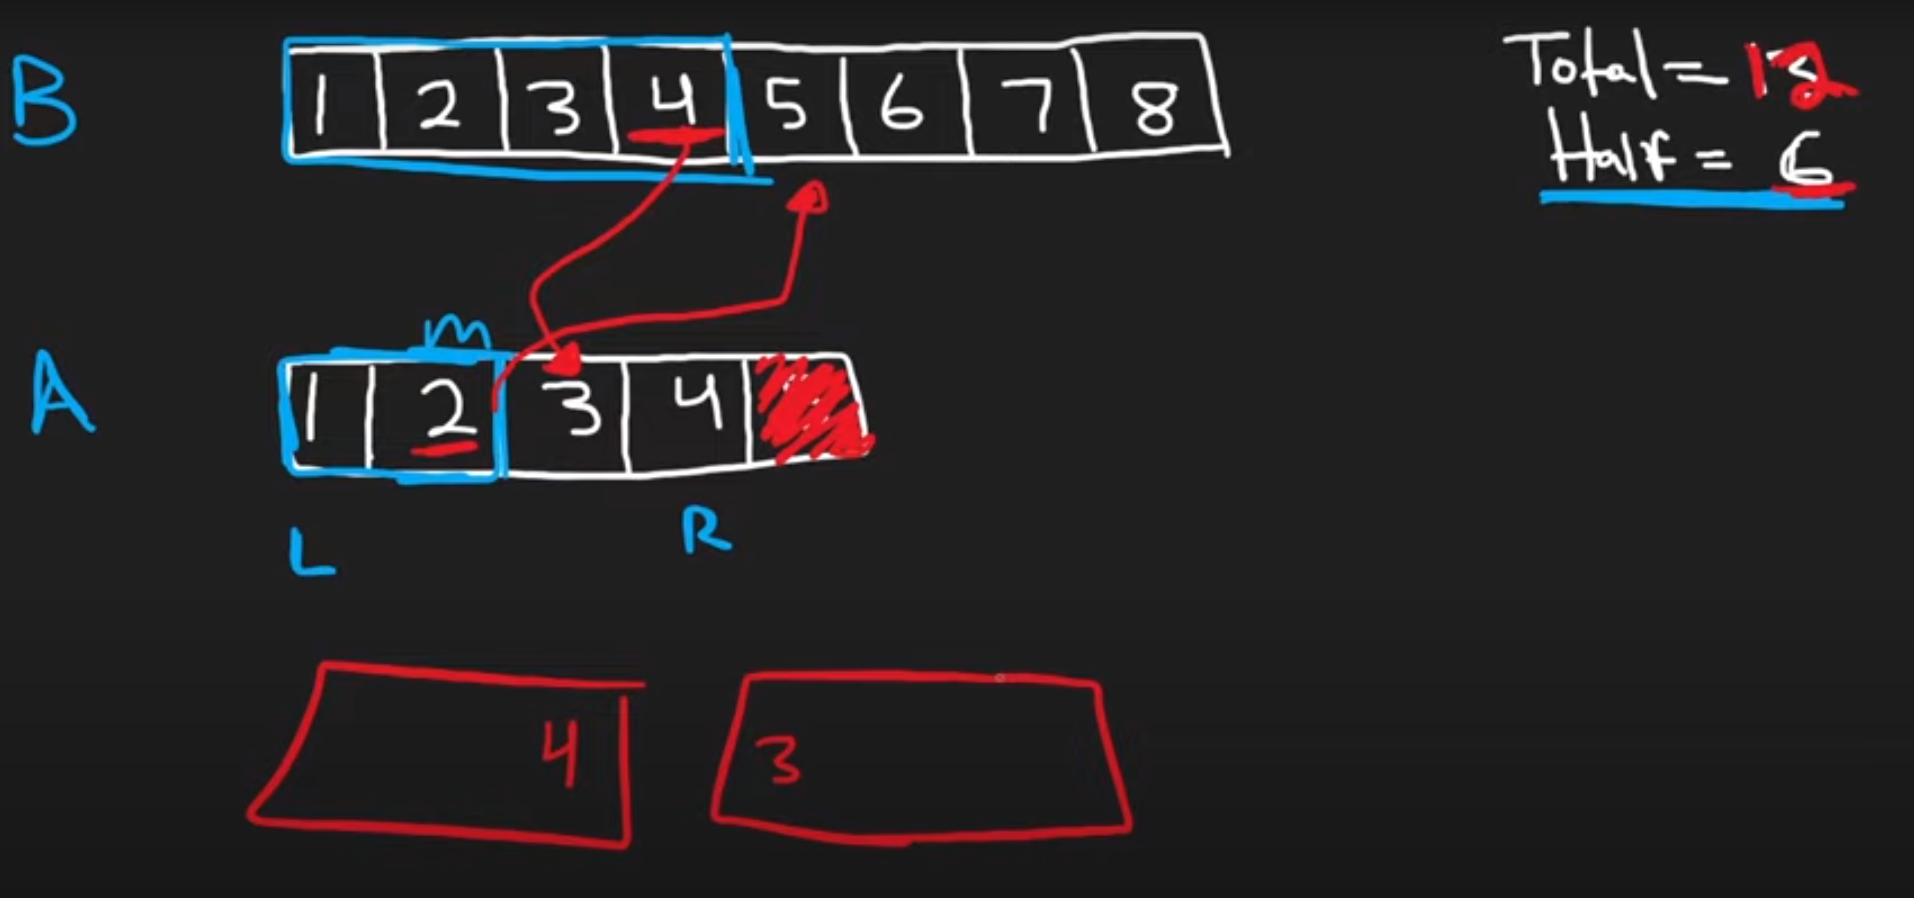 B 1 2 3 4 5 6 7 8
Total = 12
Half = 6
m
A 1 2 3 4
L R
4 3